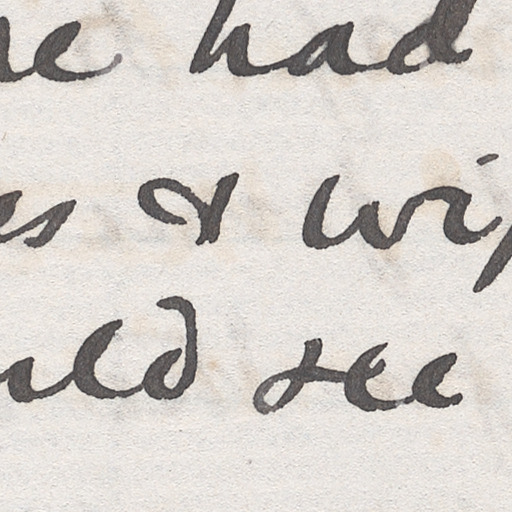 he had
es & wip
uld see